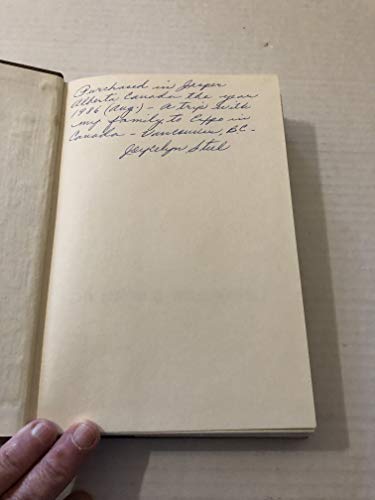 Purchased in Jasper
Alberta Canada the year
1986 (Aug.) - A trip with
my family to Expo in
Canada - Vancouver, BC -
Joycelyn Steel